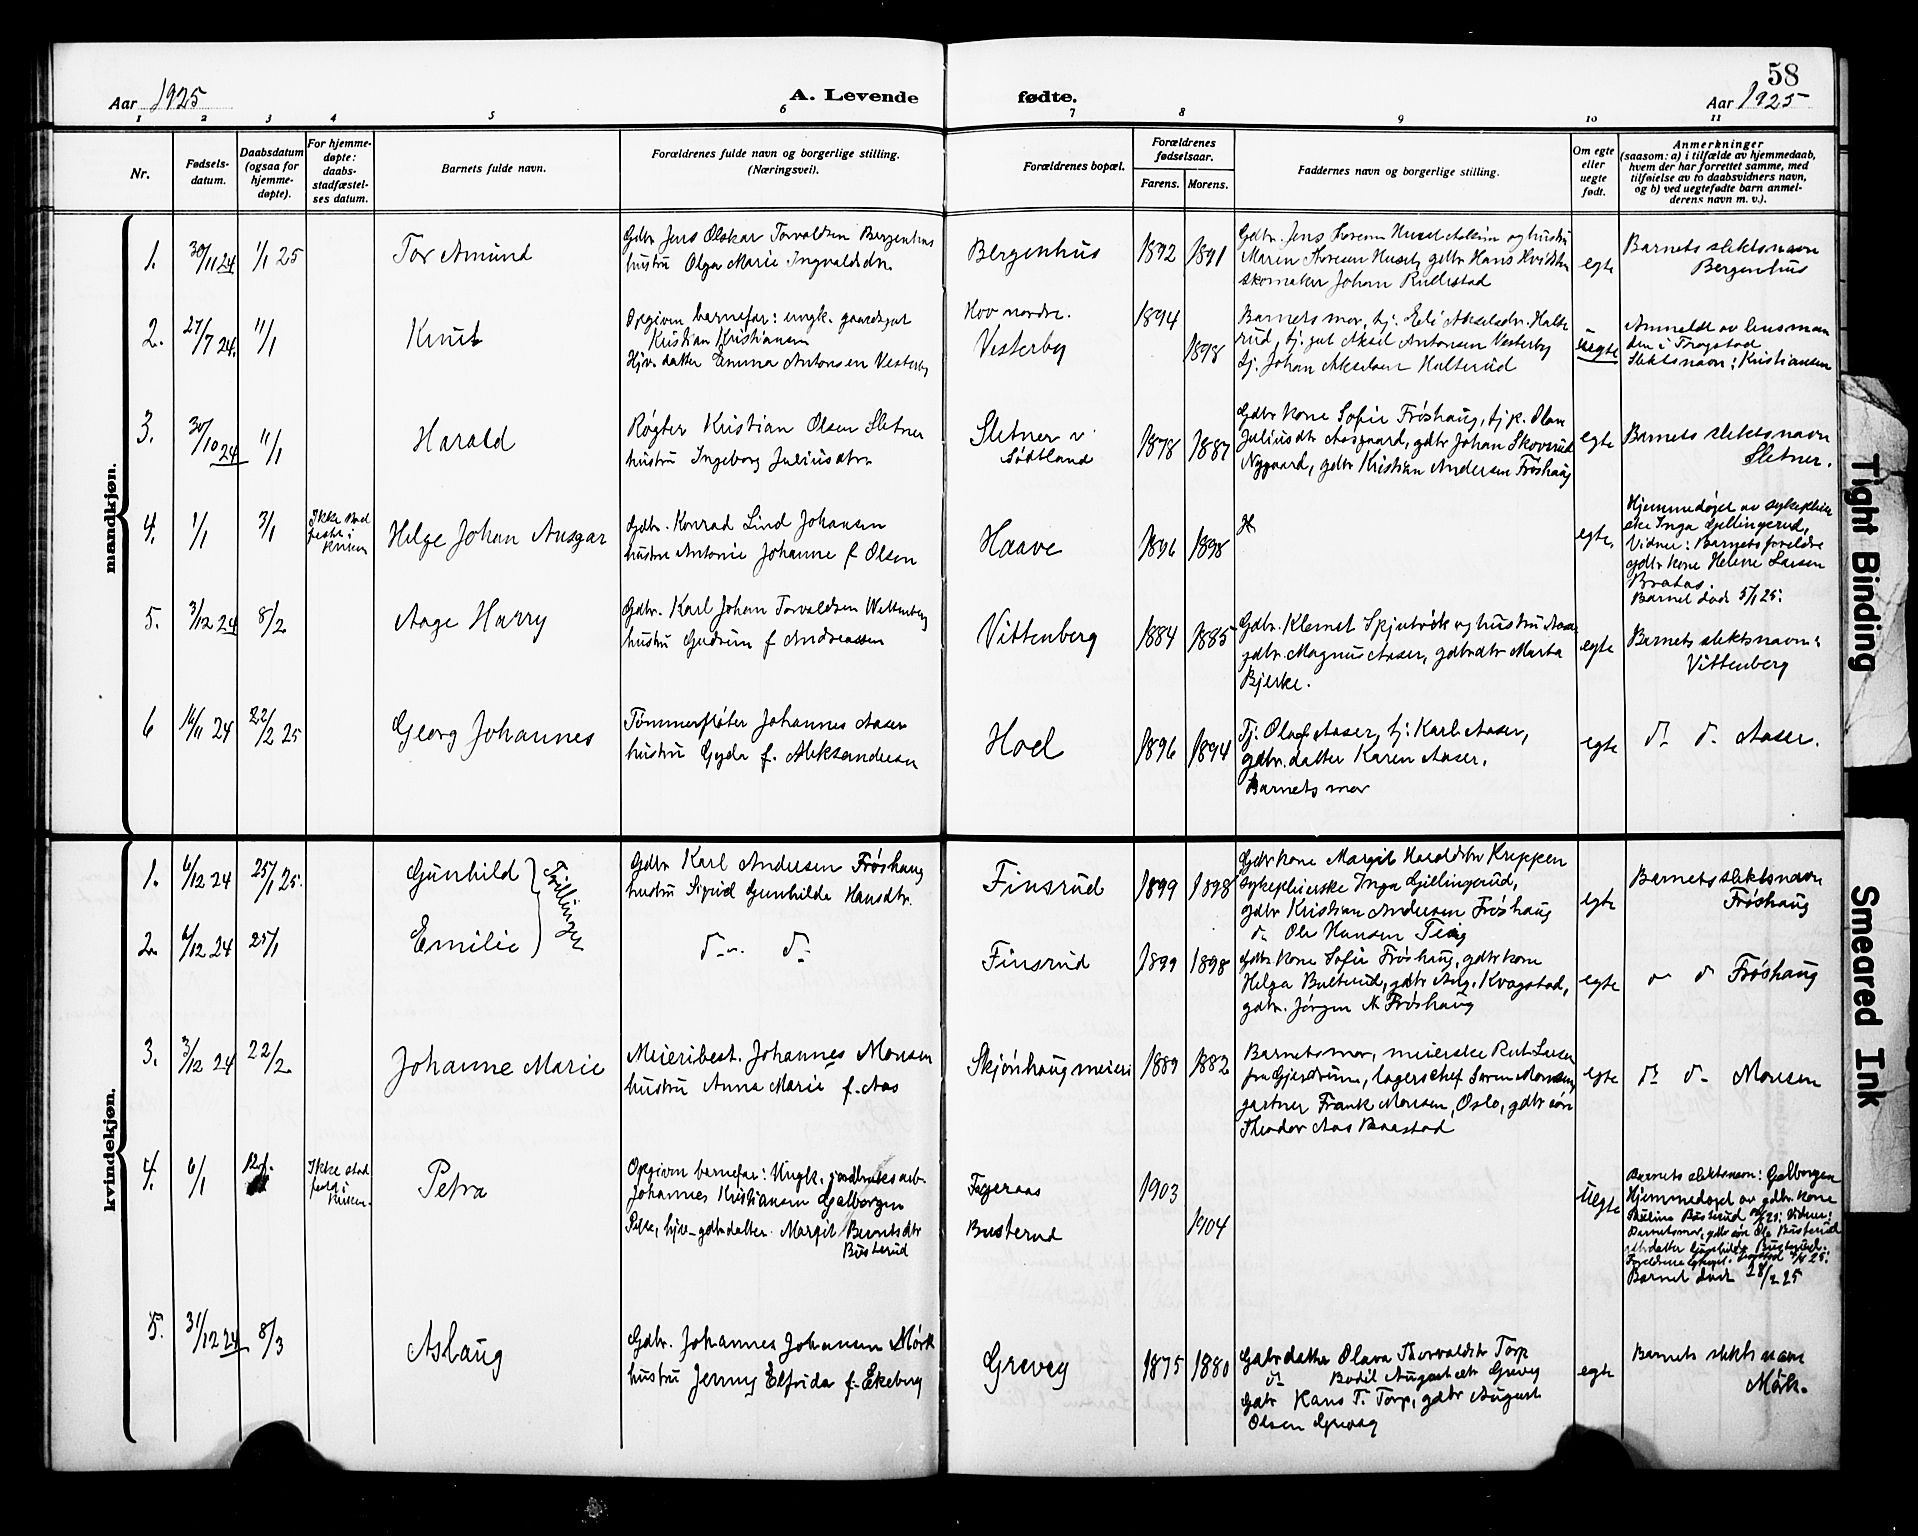 58
Aar 1925
A. Levende fødte.
Aar 1925
1 2 3 4 5 6 7 8 9 10 11
Nr.
Fødsels-
datum.
Daabsdatum
(ogsaa for
hjemme-
døpte).
For hjemme-
døpte:
daabs-
stadfæstel-
ses datum.
Barnets fulde navn.
Forældrenes fulde navn og borgerlige stilling.
(Næringsvei).
Forældrenes bopæl.
Forældrenes
fødselsaar.
Farens. Morens.
Faddernes navn og borgerlige stilling.
Om egte
eller
uegte
født.
Anmerkninger
(saasom: a) i tilfælde av hjemmedaab,
hvem der har forrettet samme, med
tilføielse av to daabsvidners navn,
og b) ved uegtefødte barn anmel-
derens navn m. v.).
mandkjøn.
1. 30/11 24 1/1 25
Tor Amund
Gdbr. Jens Olskar Torvaldsen Bergenhus
hustru Olga Marie Ingvaldsdtr.
Bergenhus
1892 1891
Gdbr. Jens Huseb og hustru
Maren Huseb, gdbr Hans
skomaker Johan Rullestad
egte
Barnets slektsnavn
Bergenhus
2. 27/7 24. 11/1
Knut
Opgiven barnefar: ungk. gaardsgut
Kristian Kristiansen
Hjv. datter Emma Antonsen Vesterby
Hov nordre.
Vesterby
1894
1898
Barnets mor, tj. Eli Akselsdtr. Halte
rud, tj. gut Aksel Antonsen Vesterby
tj. Johan Akselsen Halterud
uegte
Anmeldt av lensman
den i Trøgstad
Slektsnavn: Kristiansen
3. 30/10 24 11/1
Harald
Røgter Kristian Olsen Sletner
hustru Ingeborg Juliusdtr.
Sletner v.
Sødtland
1878 1887
Gdbr kone Sofie Frøshaug, tj. p. Olga
Juliusdtr Aasgaard, gdbr Johan Skoverud
Nygaard, gdbr Kristian Andersen Frøshaug
egte
Barnets slektsnavn
Sletner.
4. 1/1 3/1
Ikke stad
festet i
kirken
Helge Johan Ansgar
Gdbr. Konrad Lind Johansen
hustru Antonie Johanne f. Olsen
Haave
1896 1898
egte.
Hjemmedøpt av sykepleier
ske Inga Gjellingerud,
Vidner: Barnets foreldre
gdbr kone Helene Larsen
Bratas.
Barnet død 5/1 25.
5. 3/12 24 8/2
Aage Harry
Gdbr. Karl Johan Torvaldsen Wittenberg
hustru Gudrun f. Andreassen
Vittenberg
1884 1885
Gdbr. Klemet Skjutvik og hustru Aase
gdbr. Magnus Aaser, gdbrdtr Marta
Bjerke.
egte
Barnets slektsnavn:
Vittenberg
6 16/11 24 22/2 25
Georg Johannes
Tømmerfløter Johannes Aaser
hustru Gyda f. Aleksandersen
Hoel
1896 1894
Tj. Olaf Aaser, tj. Karl Aaser,
gdbr. datter Karen Aaser,
Barnets mor
egte
d. d. Aaser.
kvindekjøn.
1. 6/12 24 25/1 25.
Gunhild
Tvillinger
Gdbr Karl Andersen Frøshaug
hustru Sigrid Gunhilda Hansdtr.
Finsrud
1899 1898
Gdbr kone Margit Haraldsdtr Kreppen
sykepleierske Inga Gjellingerud,
gdbr Kristian Andersen Frøshaug
d. Ole Hansen Teig
egte
Barnets slektsnavn
Frøshaug
2. 6/12 24 25/1
Emilie
d. d.
Finsrud
1899 1898
Gdbr kone Sofie Frøshaug, gdbr kone
Helga Busterud, gdbr Aug. Kvagstad,
gdbr. Jørgen N. Frøshaug
egte
d. d. Frøshaug
3. 3/12 24 22/2.
Johanne Marie
Meieribest. Johannes Monsen
hustru Anna Marie f. Aas
Skjønhaug meieri
1889 1882
Barnets mor, meierske Rut Larsen
fra Gjerdrum, lagerschef Søren Monsen,
gartner Frank Monsen, Oslo, gdbr søn
Theodor Aas Baastad
egte
d. d. Monsen
4. 6/1
Ikke stad
festet i
kirken.
Petra
Opgiven barnefar: Ungk. jordbruksarb.
Johannes Kristiansen Galborgen
Pike, hjv. gdbr datter Margit Berntsdtr
Busterud
Fageraas
Busterud
1903
1904
uegte
Barnets slektsnavn: Galborgen
Hjemmedøpt av gdbr. kone
Thuline Busterud Vidner:
Barnets mor, gdbr søn Ole Busterud
gdbr datter Gunhilda Busterud.
Barnet død 28/2 25
5. 31/12 24 8/3
Aslaug
Gdbr. Johannes Johansen Mørk
hustru Jenny Elfrida f. Ekeberg
Greveg
1875 1880
Gdbr datter Olava Thorvaldsdtr Torp
d. Bodil Augustsdtr Greveg
Gdbr Hans T. Torp, gdbr August
Olsen Greveg
egte
Barnets slektsnavn
Mørk.
Tight Binding
Smeared Ink